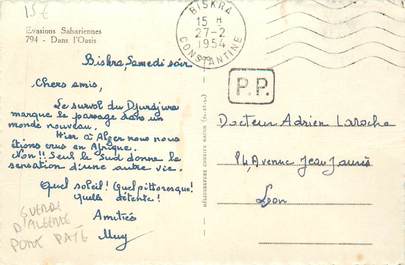 15€
Evasions Sahariennes
794 - Dans l'Oasis
BISKRA
15 H
27-2
1954
CONSTANTINE
P.P.
Biskra, Samedi soir
Chers amis,
Le survol du Djurdjura
marque le passage dans un
monde nouveau.
Hier à Alger nous nous
étions crus en Afrique.
Non!! Seul le Sud donne la
sensation d'une autre vie.
Quel soleil! Quel pittoresque!
Quelle détente!
Amitiés
Muy
Docteur Adrien Laroche
84, Avenue Jean Jaurès
Lyon
GUERRE
D'ALGERIE
PORT PAYÉ